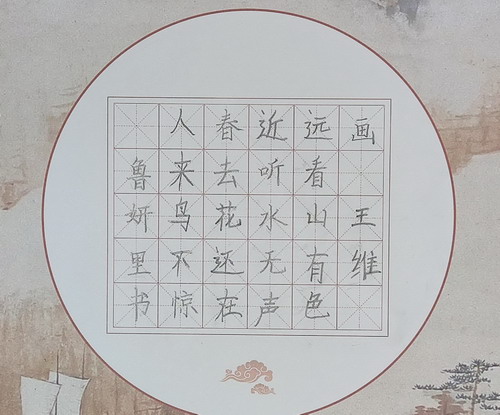 画 王维
远看山有色
近听水无声
春去花还在
人来鸟不惊
鲁妍里书